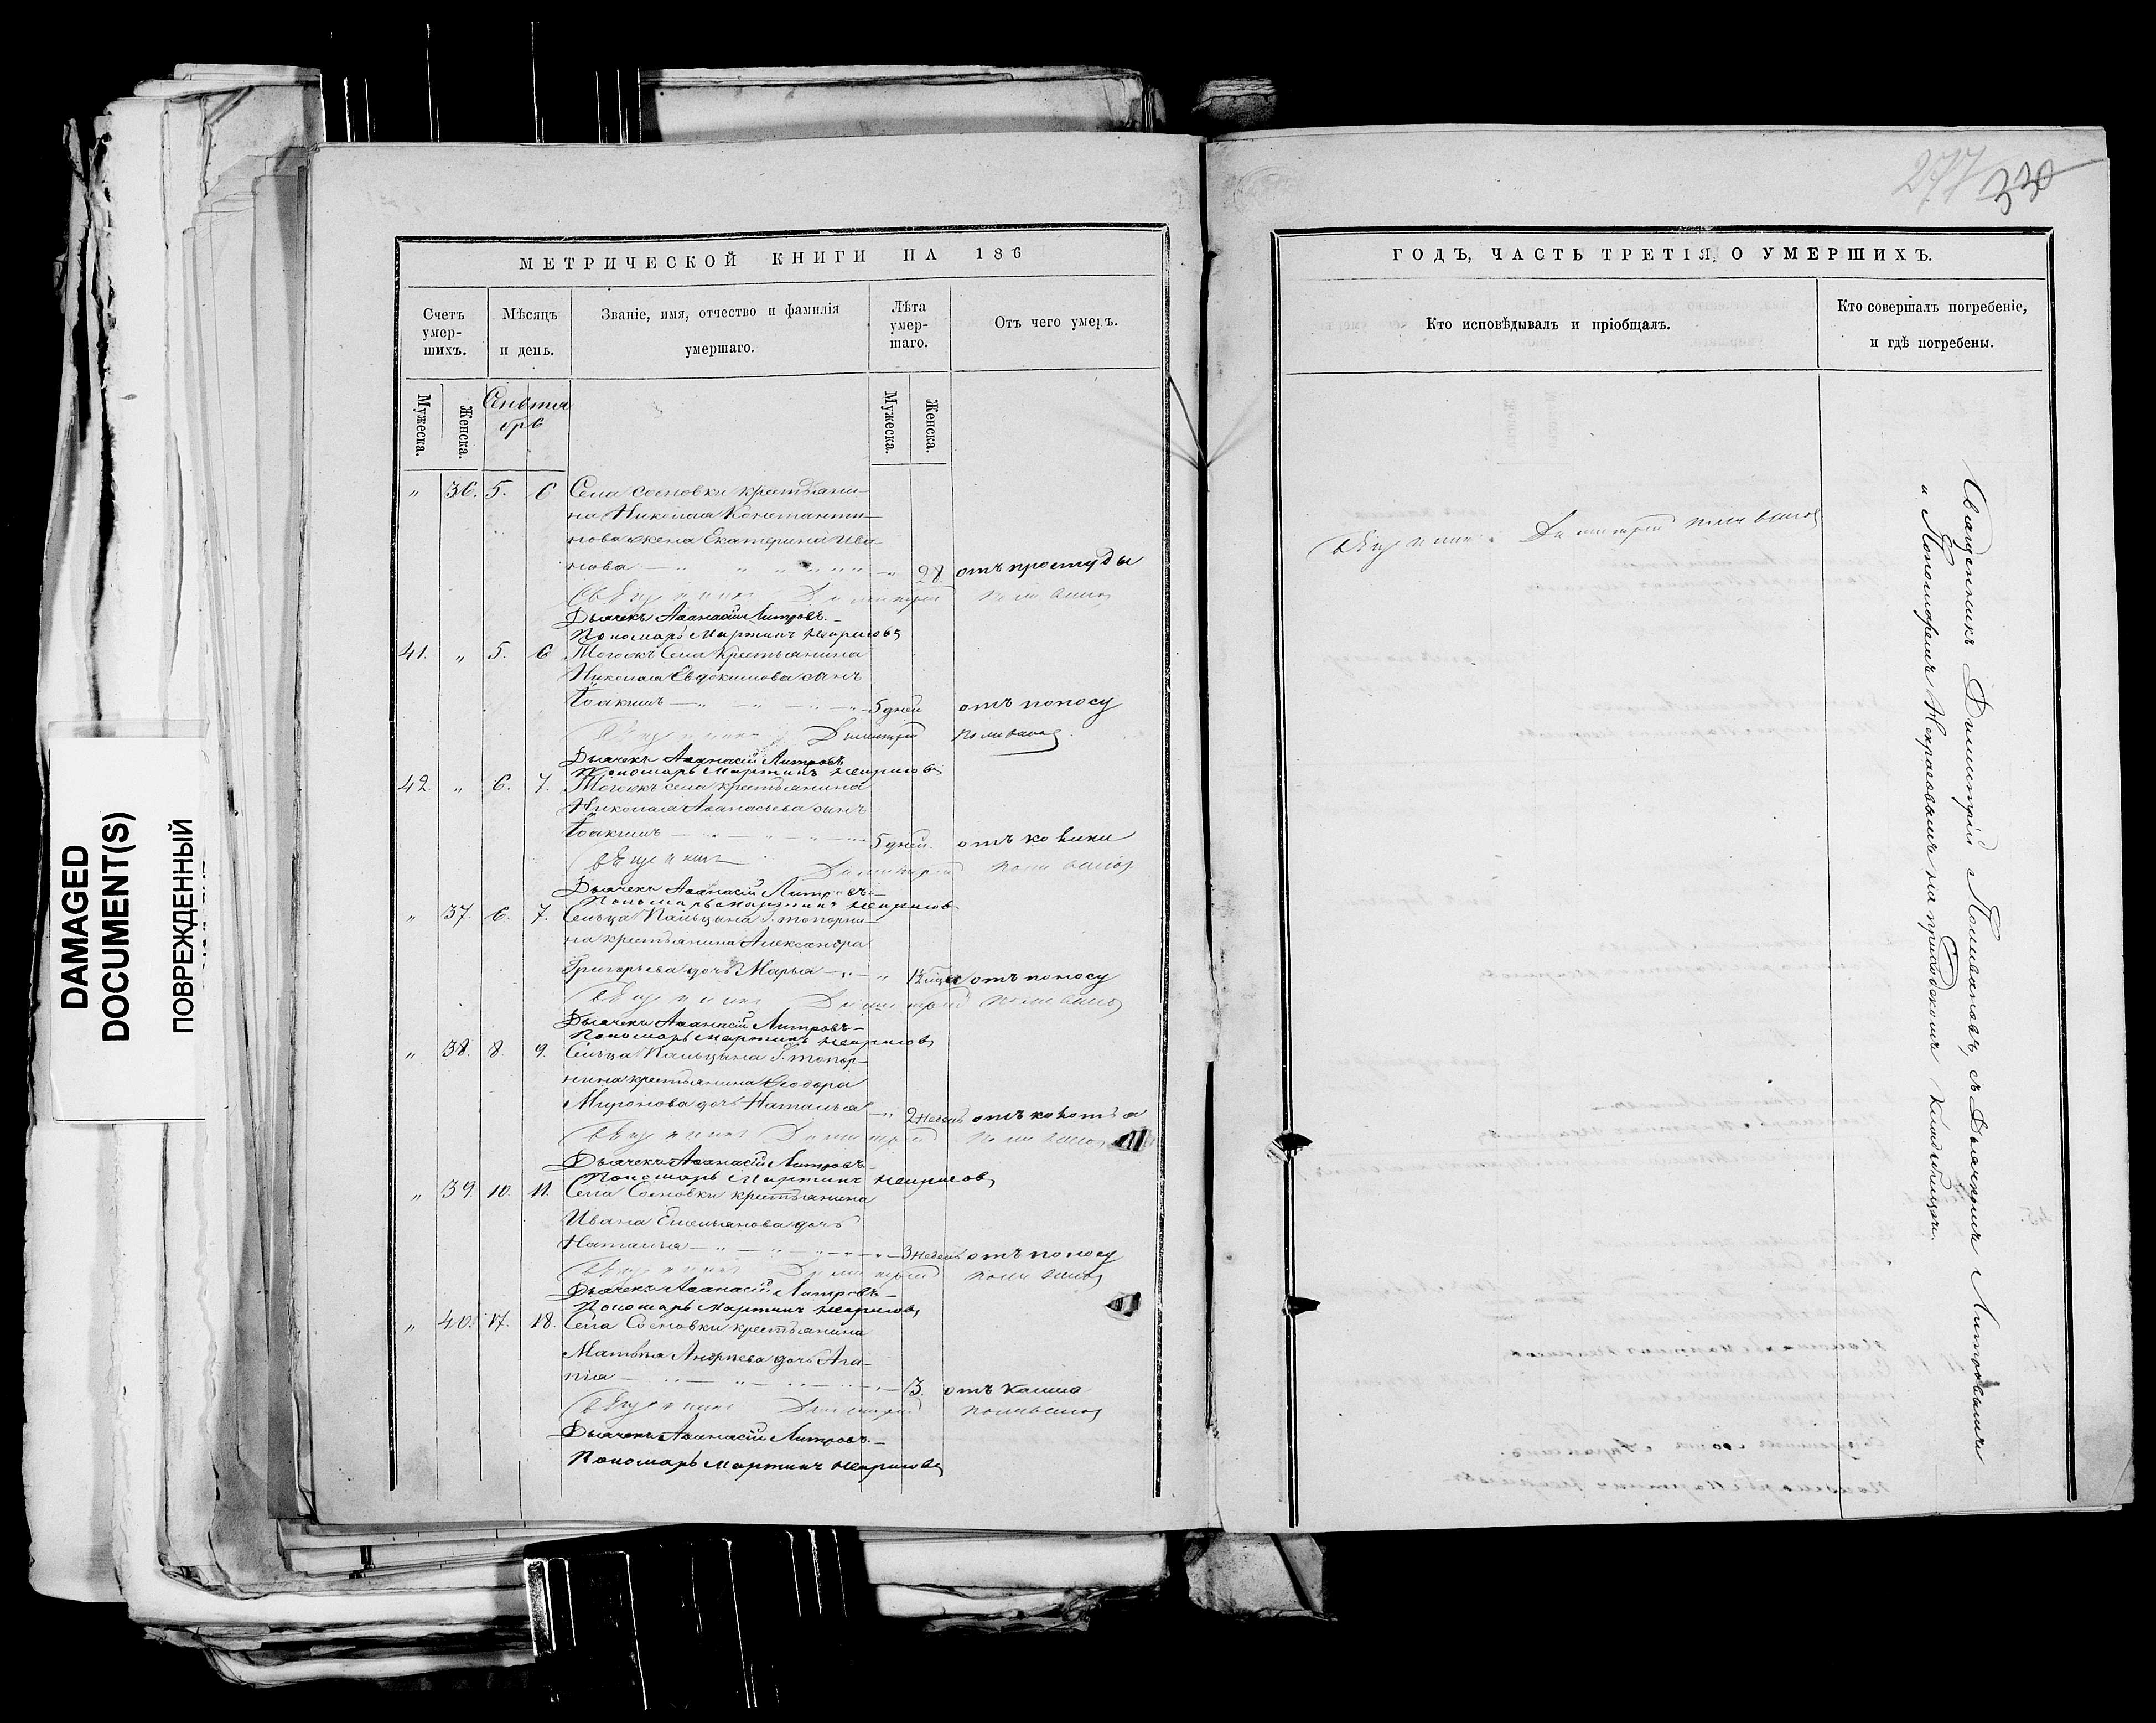 DAMAGED
DOCUMENT(S)
ПОВРЕЖДЕННЫЙ
МЕТРИЧЕСКОЙ КНИГИ НА 186
Счетъ умер-шихъ.
Мѣсяцъ и день.
Званіе, имя, отчество и фамилія умершаго.
Лѣта умер-шаго.
Отъ чего умеръ.
Мужеска.
Женска.
Сентябрь
Мужеска.
Женска.
„ 36. 5. 6 Села Сосновки крестьяни-
на Николая Константи-
нова жена Екатерина Ива-
нова 28. отъ простуды
Священникъ Димитрій Поливановъ
Дьячекъ Аѳанасій Литровъ.
Пономарь Мартинъ Некрасовъ
41. „ 5. 6 Тогожъ Села Крестьянина
Николая Евдокимова сынъ
Іоакимъ 5 дней отъ поносу
Священникъ Димитрій Поливановъ
Дьячекъ Аѳанасій Литровъ
Пономарь Мартинъ Некрасовъ
42. „ 6. 7. Тогожъ села крестьянина
Николая Аѳанасьева сынъ
Іоакимъ 5 дней.
Священникъ Димитрій Поливановъ
Дьячекъ Аѳанасій Литровъ
Пономарь Мартинъ Некрасовъ
„ 37. 6. 7. Сельца Пальцына Г. Топорни-
на крестьянина Александра
Григорьева дочь Марья „ отъ поносу
Священникъ Димитрій Поливановъ
Дьячекъ Аѳанасій Литровъ
Пономарь Мартинъ Некрасовъ
„ 38. 8. 9. Сельца Пальцына Г. Топор-
нина крестьянина Ѳеодора
Миронова дочь Наталья „ 2 недель
Священникъ Димитрій Поливановъ
Дьячекъ Аѳанасій Литровъ
Пономарь Мартинъ Некрасовъ
„ 39. 10. 11. Села Сосновки крестьянина
Ивана Емельянова дочь
Наталья 3 недель отъ поносу
Священникъ Димитрій Поливановъ
Дьячекъ Аѳанасій Литровъ
Пономарь Мартинъ Некрасовъ
„ 40. 17. 18. Села Сосновки крестьянина
Матвѣя Андреева дочь Ага-
пія 3. отъ кашля
Священникъ Димитрій Поливановъ
Дьячекъ Аѳанасій Литровъ.
Пономарь Мартинъ Некрасовъ
277 330
ГОДЪ, ЧАСТЬ ТРЕТІЯ, О УМЕРШИХЪ.
Кто исповѣдывалъ и пріобщалъ.
Кто совершалъ погребеніе, и гдѣ погребены.
Священникъ Димитрій Поливановъ
Священникъ Димитрій Поливановъ, съ Дьячкомъ Литровымъ
и Пономаремъ Некрасовымъ на приходскомъ кладбищѣ.